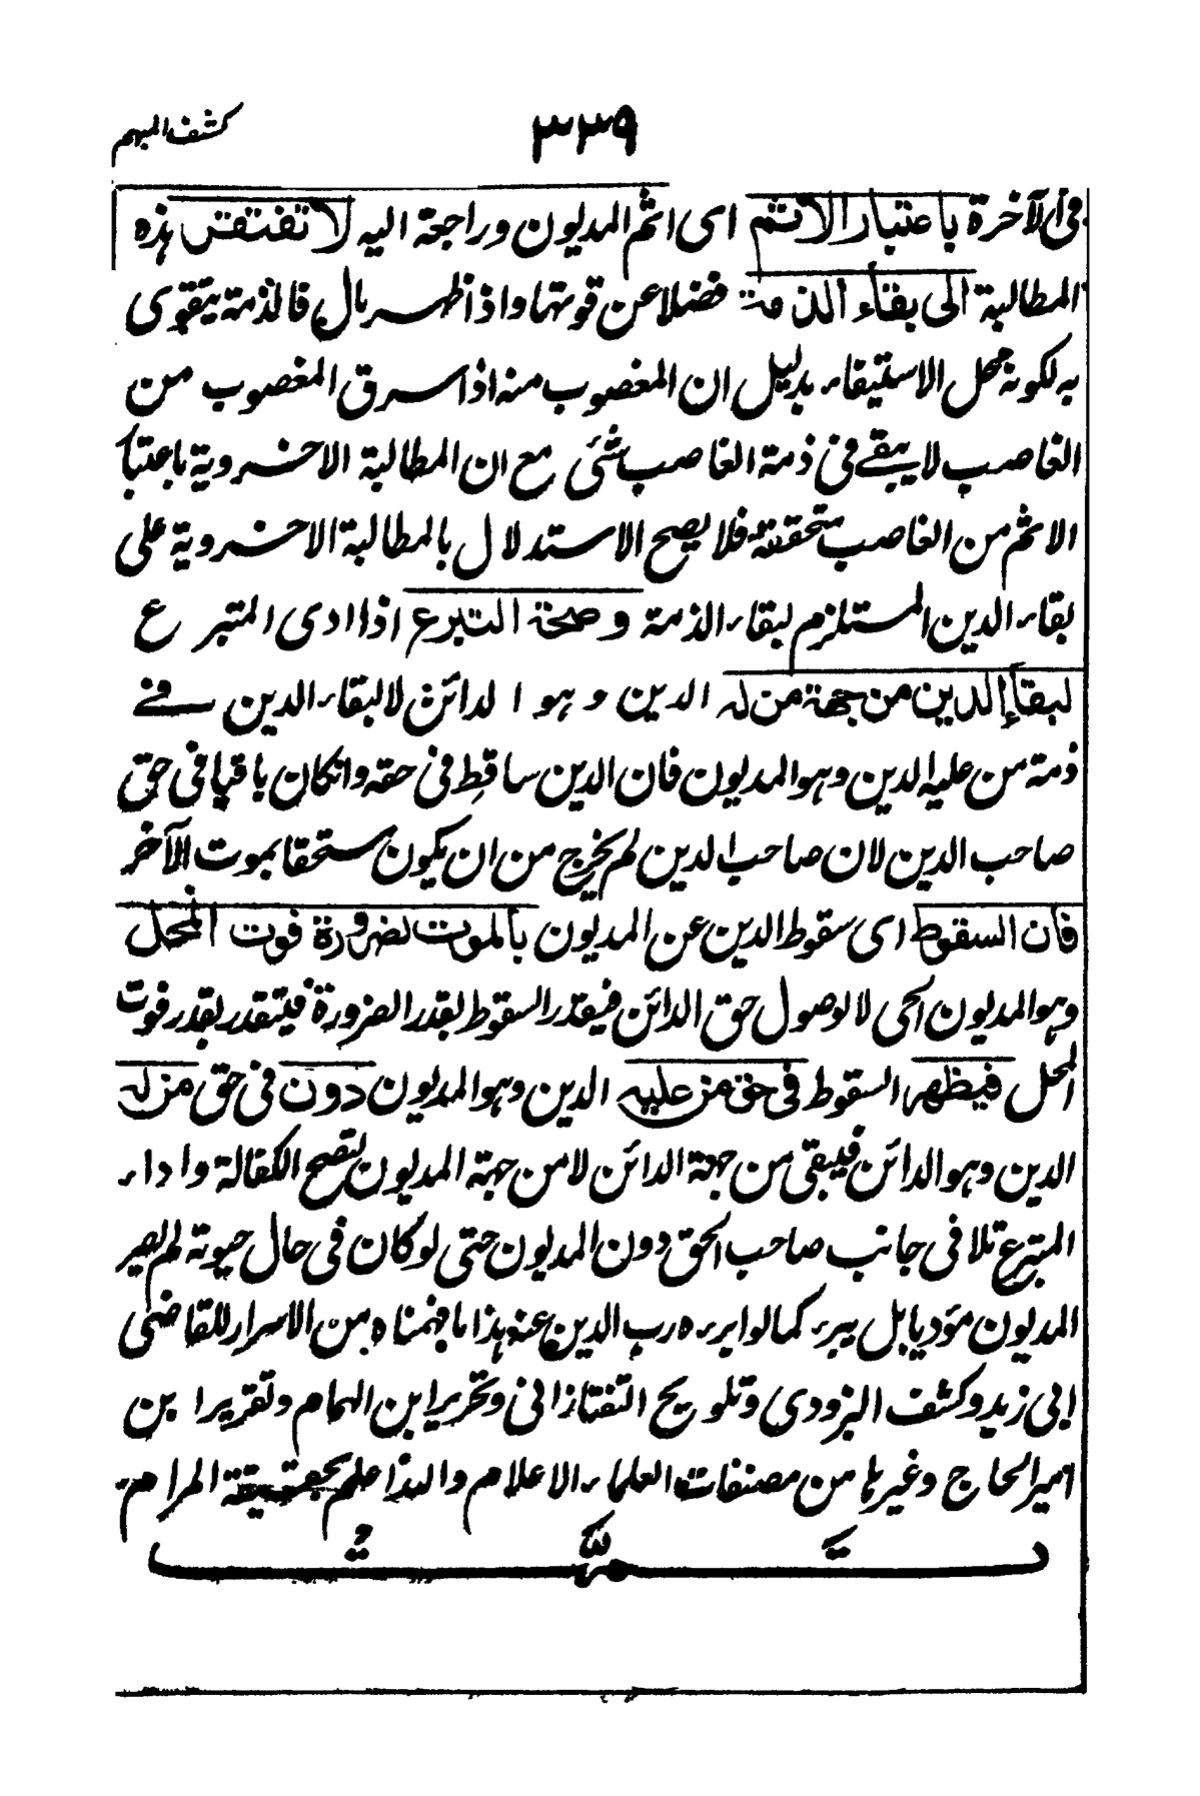 كشف المبهم
٣٣٩
فى الآخرة باعتبار الاثم اى اثم المديون وراجعة اليه لا تفتقر هذه
المطالبة الى بقاء الذمة فضلا عن قوتها واذا ظهر مال فالذمة يتقوى
به لكونه محل الاستيفاء بدليل ان المغصوب منه اذا سرق المغصوب من
الغاصب لا يبقے فى ذمة الغاصب شئى مع ان المطالبة الاخروية باعتبا
الاثم من الغاصب متحققة فلا يصح الاستدلال بالمطالبة الاخروية على
بقاء الدين المستلزم لبقاء الذمة وصحة التبرع اذا ادى المتبرع
لبقاء الدين من جهة من له الدين وهو الدائن لا لبقاء الدين فے
ذمة من عليه الدين وهو المديون فان الدين ساقط فى حقه وانكان باقيا فى حق
صاحب الدين لان صاحب الدين لم يخرج من ان يكون مستحقا بموت الآخر
فان السقوط اى سقوط الدين عن المديون بالموت لضرورة فوت المحل
وهو المديون الحى لا لوصول حق الدائن فيقدر السقوط بقدر الضرورة فيتقدر بقدر فوت
المحل فيظهر السقوط فى حق من عليه الدين وهو المديون دون فى حق من له
الدين وهو الدائن فيبقى من جهة الدائن لا من جهة المديون لتصح الكفالة واداء
المتبرع تلا فى جانب صاحب الحق دون المديون حتى لو كان فى حال حيوته لم يصر
المديون مؤديا بل يبرء كما لو ابرءه رب الدين عنه هذا ما فهمناه من الاسرار للقاضى
ابى زيد وكشف البزودى وتلويح التفتازانى وتحرير ابن الهمام وتقرير ابن
امير الحاج وغيرها من مصنفات العلماء الاعلام والله اعلم بحقيقة المرام